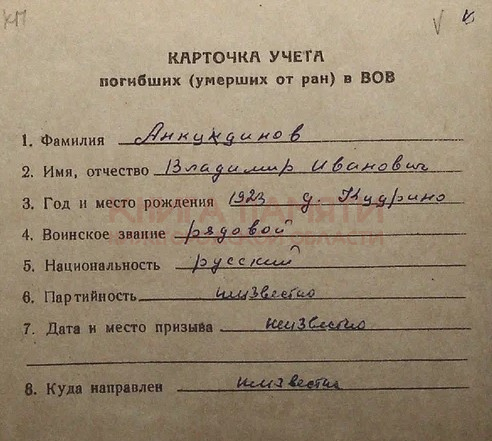 КАРТОЧКА УЧЕТА
погибших (умерших от ран) в ВОВ
1. Фамилия Анкундинов
2. Имя, отчество Владимир Иванович
3. Год и место рождения 1923 д. Кудрино
КНИГА ПАМЯТИ
4. Воинское звание рядовой
5. Национальность русский
6. Партийность неизвестно
7. Дата и место призыва неизвестно
8. Куда направлен неизвестно